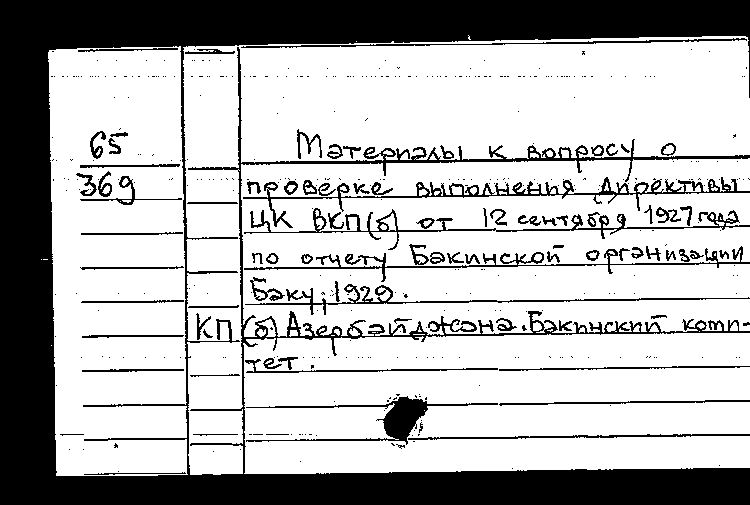 65
369
Материалы к вопросу о
проверке выполнения директивы
ЦК ВКП(б) от 12 сентября 1927 года
по отчету Бакинской организации
Баку, 1929.
КП (б) Азербайджана. Бакинский коми-
тет.